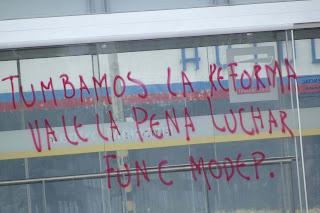 TUMBAMOS LA REFORMA
VALE LA PENA LUCHAR
FUNC MODEP.